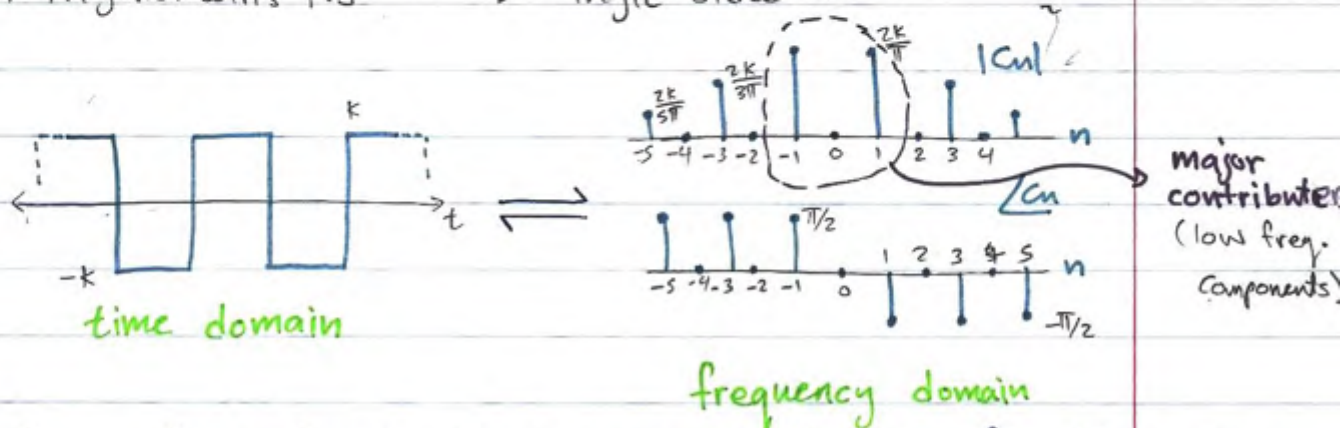 K
-K
t
time domain
2K/5π
2K/3π
2K/π
|Cn|
-5 -4 -3 -2 -1 0 1 2 3 4
n
∠Cn
π/2
1 2 3 4 5
-5 -4 -3 -2 -1 0
n
-π/2
frequency domain
major
contributer
(low freq.
components)